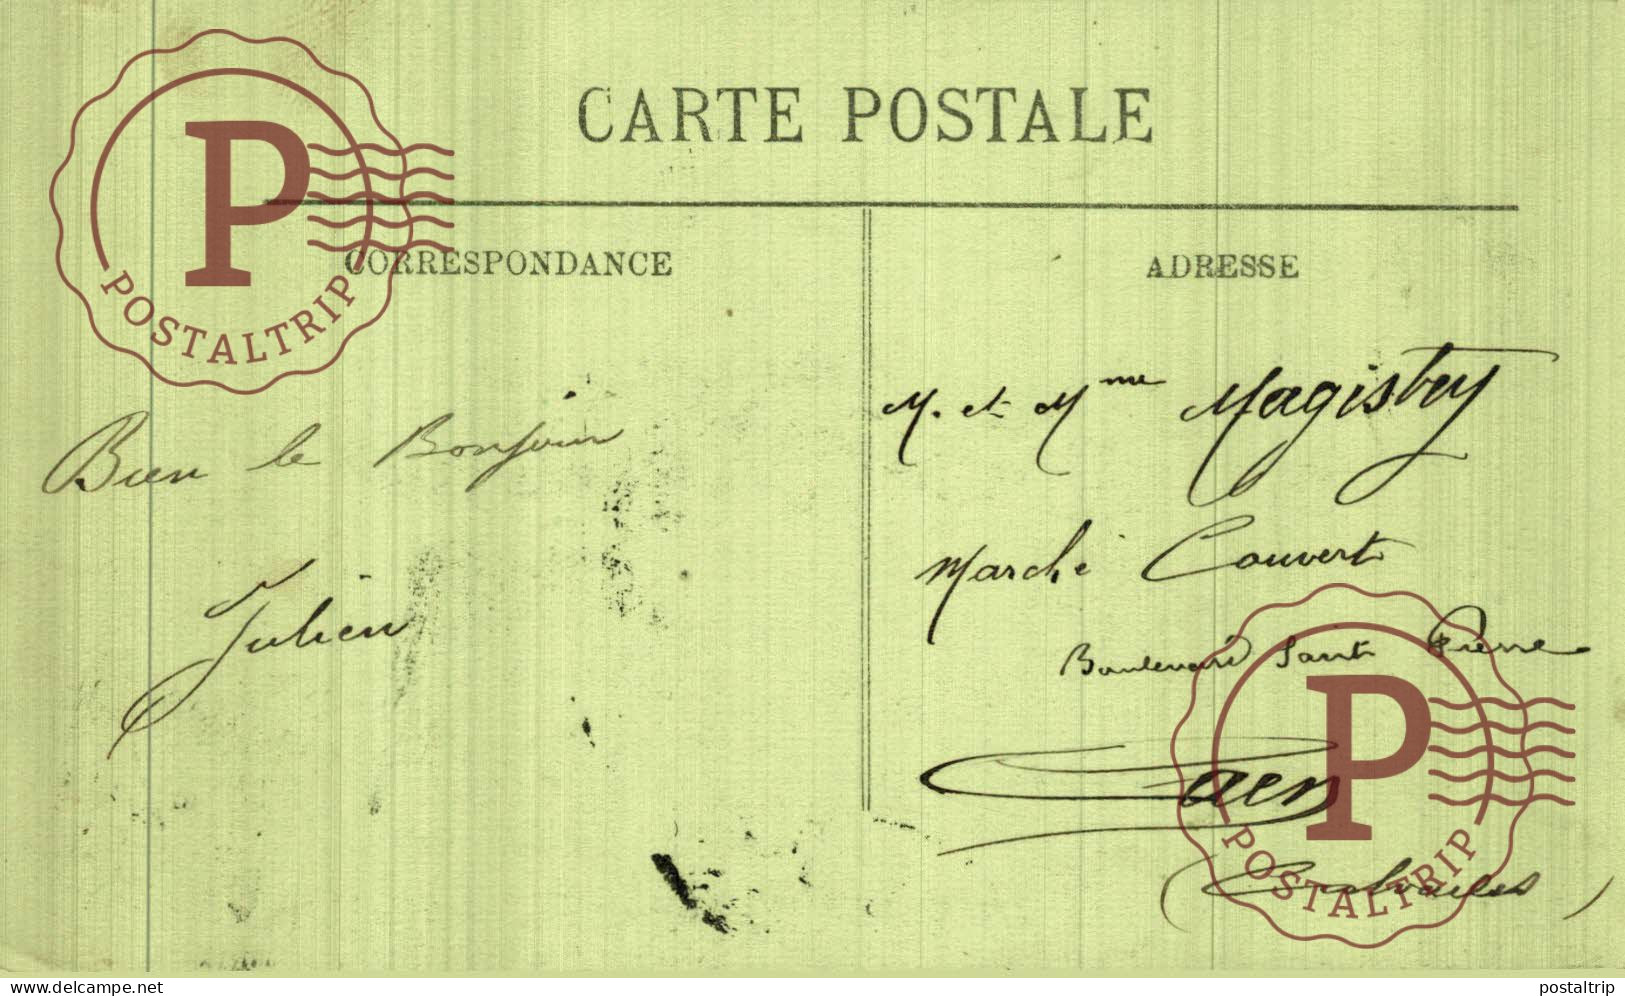 CARTE POSTALE
CORRESPONDANCE
ADRESSE
P
POSTALTRIP
Bien le Bonjour
Julien
M. et Mme Magistry
Marché Couvert
Boulevard Saint Pierre
Caen
(Calvados)
P
POSTALTRIP
www.delcampe.net
postaltrip